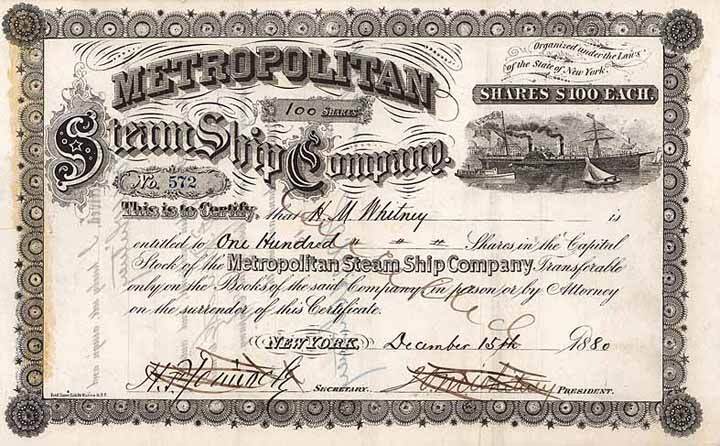 METROPOLITAN
100 SHARES
Organized under the Laws
of the State of New York.
SHARES $100 EACH.
Steam Ship Company.
No. 572
This is to Certify, that H M Whitney is
entitled to One Hundred " " " Shares in the Capital
Stock of the Metropolitan Steam Ship Company Transferable
only on the Books of the said Company in person or by Attorney
on the surrender of this Certificate.
NEW YORK, December 15th 1880
SECRETARY. PRESIDENT.